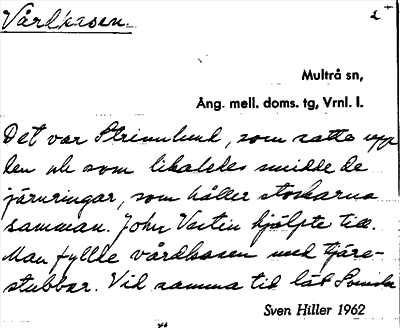 Vårdkasen.
2
Multrå sn,
Ång. mell. doms. tg, Vrnl. l.
Det var Strinnlund, som satte upp
den och som likaledes smidde de
järnringar, som håller stockarna
samman. John Vestin hjälpte till.
Man fyllde vårdkasen med tjäre-
stubbar. Vid samma tid lät
Sven Hiller 1962